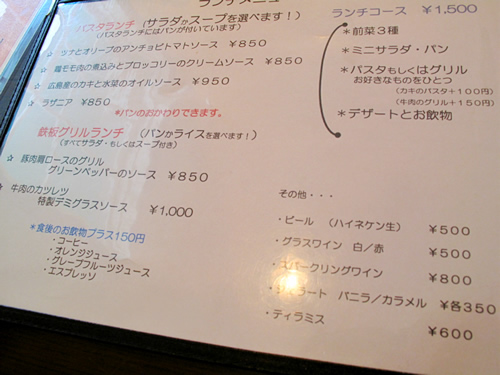 ランチメニュー
パスタランチ (サラダかスープを選べます！)
(パスタランチにはパンが付いています)
☆ ツナとオリーブのアンチョビトマトソース ￥850
☆ 鶏モモ肉の煮込みとブロッコリーのクリームソース ￥850
☆ 広島産のカキと水菜のオイルソース ￥950
☆ ラザニア ￥850
*パンのおかわりできます。
鉄板グリルランチ (パンかライスを選べます！)
(すべてサラダ・もしくはスープ付き)
☆ 豚肉肩ロースのグリル
グリーンペッパーのソース ￥850
☆ 牛肉のカツレツ
特製デミグラスソース ￥1,000
*食後のお飲物プラス150円
・コーヒー
・オレンジジュース
・グレープフルーツジュース
・エスプレッソ
ランチコース ￥1,500
*前菜３種
*ミニサラダ・パン
*パスタもしくはグリル
お好きなものをひとつ
(カキのパスタ＋100円)
(牛肉のグリル＋150円)
*デザートとお飲物
その他・・・
・ビール (ハイネケン生) ￥500
・グラスワイン 白／赤 ￥500
・スパークリングワイン ￥800
・ジェラート バニラ／カラメル ￥各350
・ティラミス ￥600